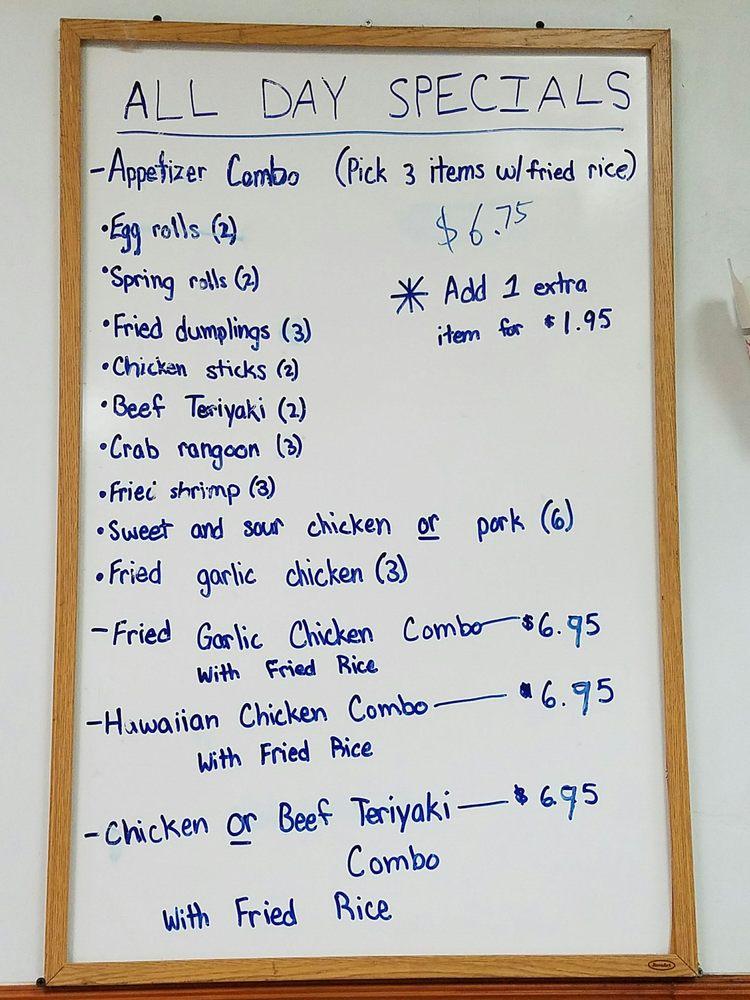 ALL DAY SPECIALS
-Appetizer Combo (Pick 3 items w/fried rice)
$6.75
•Egg rolls (2)
•Spring rolls (2)
* Add 1 extra
item for $1.95
•Fried dumplings (3)
•Chicken sticks (2)
•Beef Teriyaki (2)
•Crab rangoon (3)
•Fried shrimp (3)
•Sweet and sour chicken or pork (6)
•Fried garlic chicken (3)
-Fried Garlic Chicken Combo—$6.95
With Fried Rice
-Hawaiian Chicken Combo—$6.95
With Fried Rice
-Chicken or Beef Teriyaki—$6.95
Combo
With Fried Rice